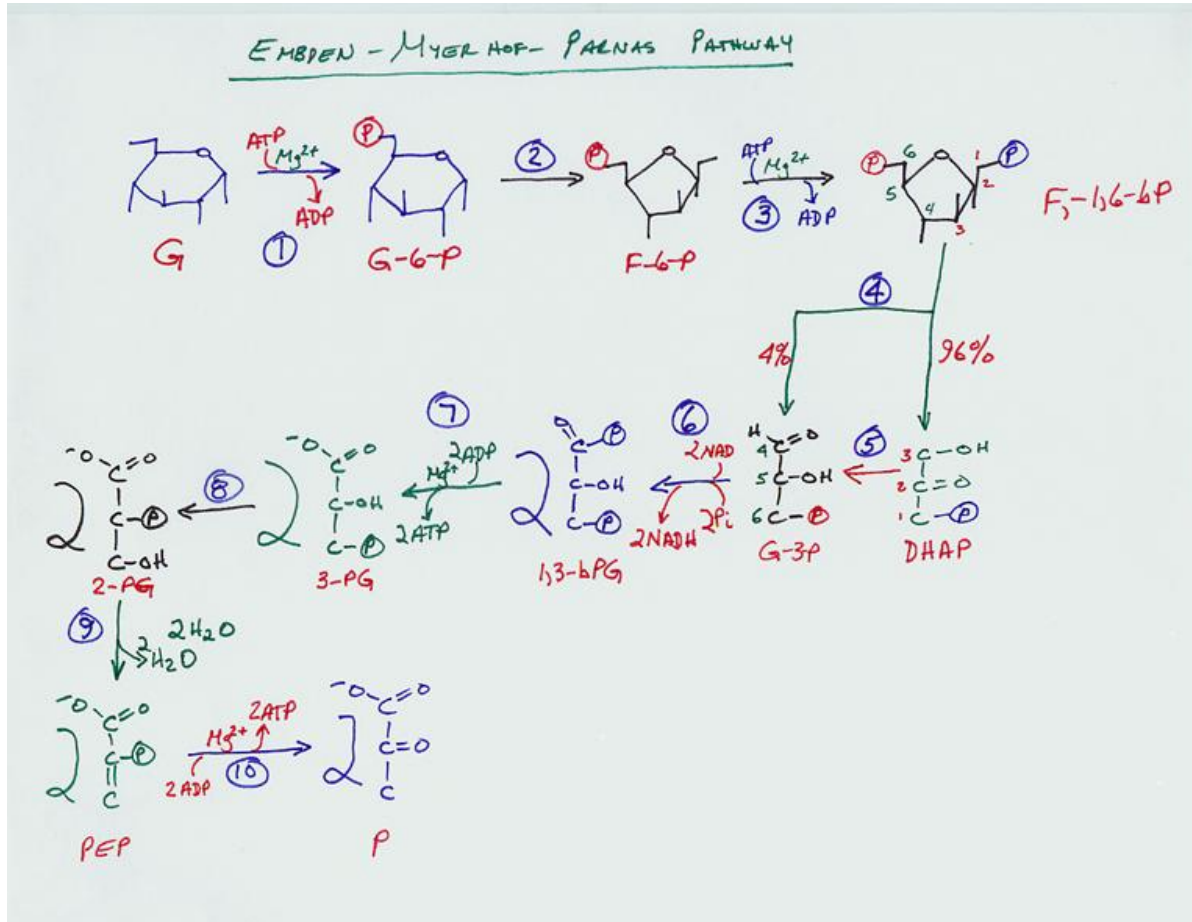 EMBDEN - MYERHOF- PARNAS PATHWAY
ATP
Mg2+
ADP
1
G
P
G-6-P
2
P
F-6-P
ATP
Mg2+
ADP
3
P
6
5
4
3
2
1
P
F,-1,6-bP
4
4%
96%
H
4 C=O
5 C-OH
6 C-P
G-3P
5
3 C-OH
2 C=O
1 C-P
DHAP
6
2NAD
2Pi
2NADH
2
O
C-P
C-OH
C-P
1,3-bPG
7
2ADP
Mg2+
2ATP
2
-O
C=O
C-OH
C-P
3-PG
8
2
-O
C=O
C-P
C-OH
2-PG
9
2H2O
2
H2O
2
-O
C=O
C-P
C
PEP
2ATP
Mg2+
2ADP
10
2
-O
C=O
C=O
C
P